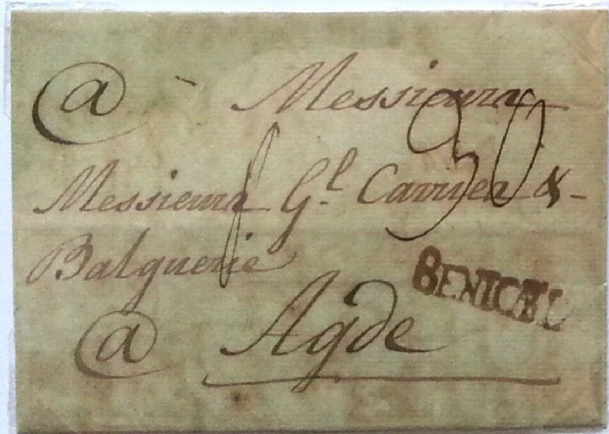 @ Messieurs
30
Messieurs G.l Carrier &
Balguerie
BENICAR
@ Agde